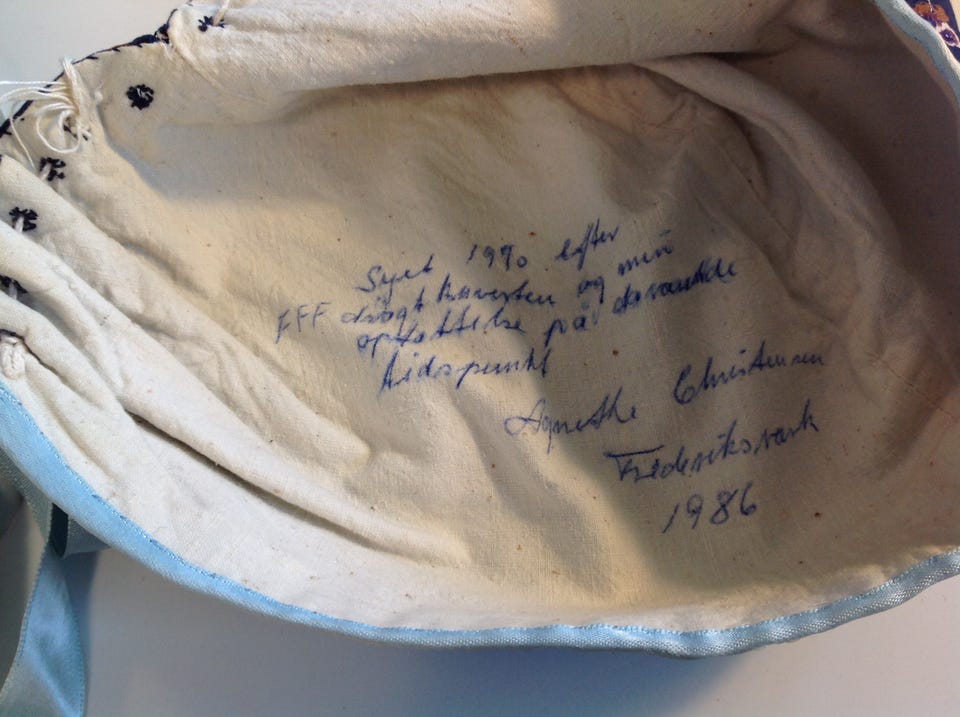 Syet 1970 efter
FFF dragt og min
opfattelse på daværende
tidspunkt
Agnethe Christensen
Frederiksværk
1986